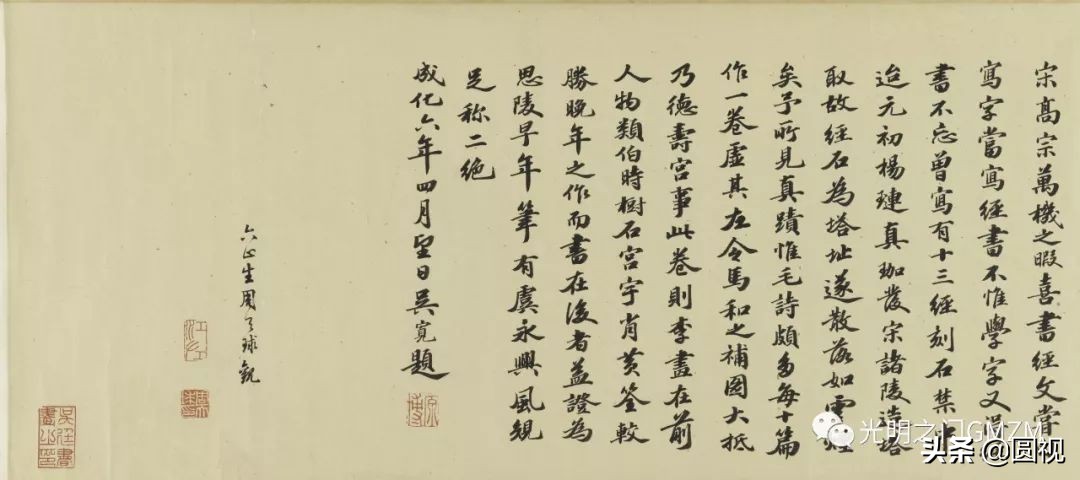 宋高宗萬機之暇喜書經文嘗
寫字當寫經書不惟學字又得
書不忘曾寫有十三經刻石禁中
迨元初楊璉真珈發宋諸陵造塔
取故經石為塔址遂散落如雲煙
矣予所見真蹟惟毛詩頗多每十篇
作一卷虛其左令馬和之補圖大抵
乃德壽宮事此卷則李畫在前
人物類伯時樹石宮宇肖黃筌較
勝晚年之作而書在後者益證為
思陵早年筆有虞永興風規
足稱二絕
成化六年四月望日吳寬題
原博
六止生周天球觀
書畫之印
光明之门GMZM
头条 @圆视